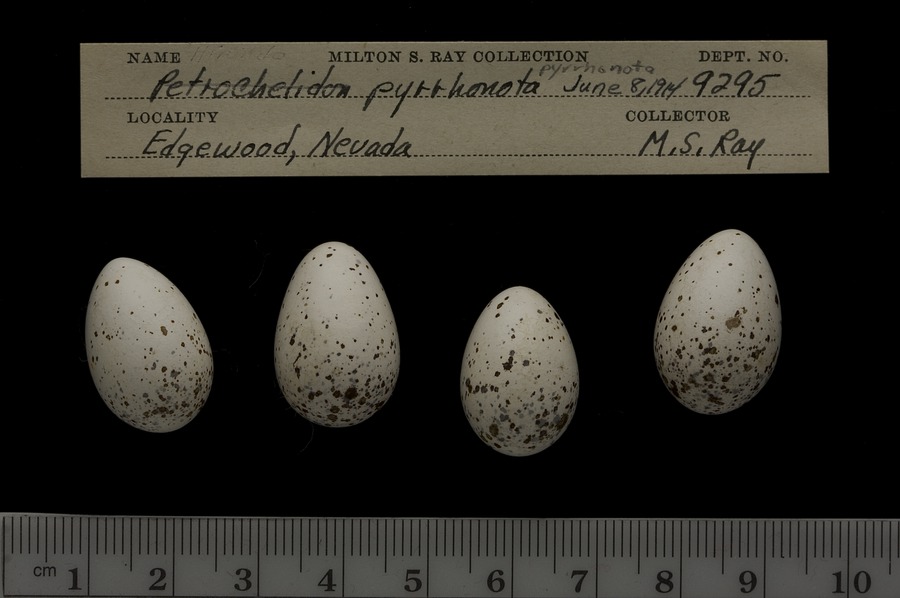 NAME MILTON S. RAY COLLECTION DEPT. NO.
pyrrhonota
Petrochelidon pyrrhonota June 8, 1914 9295
LOCALITY COLLECTOR
Edgewood, Nevada M.S. Ray
cm 1 2 3 4 5 6 7 8 9 10